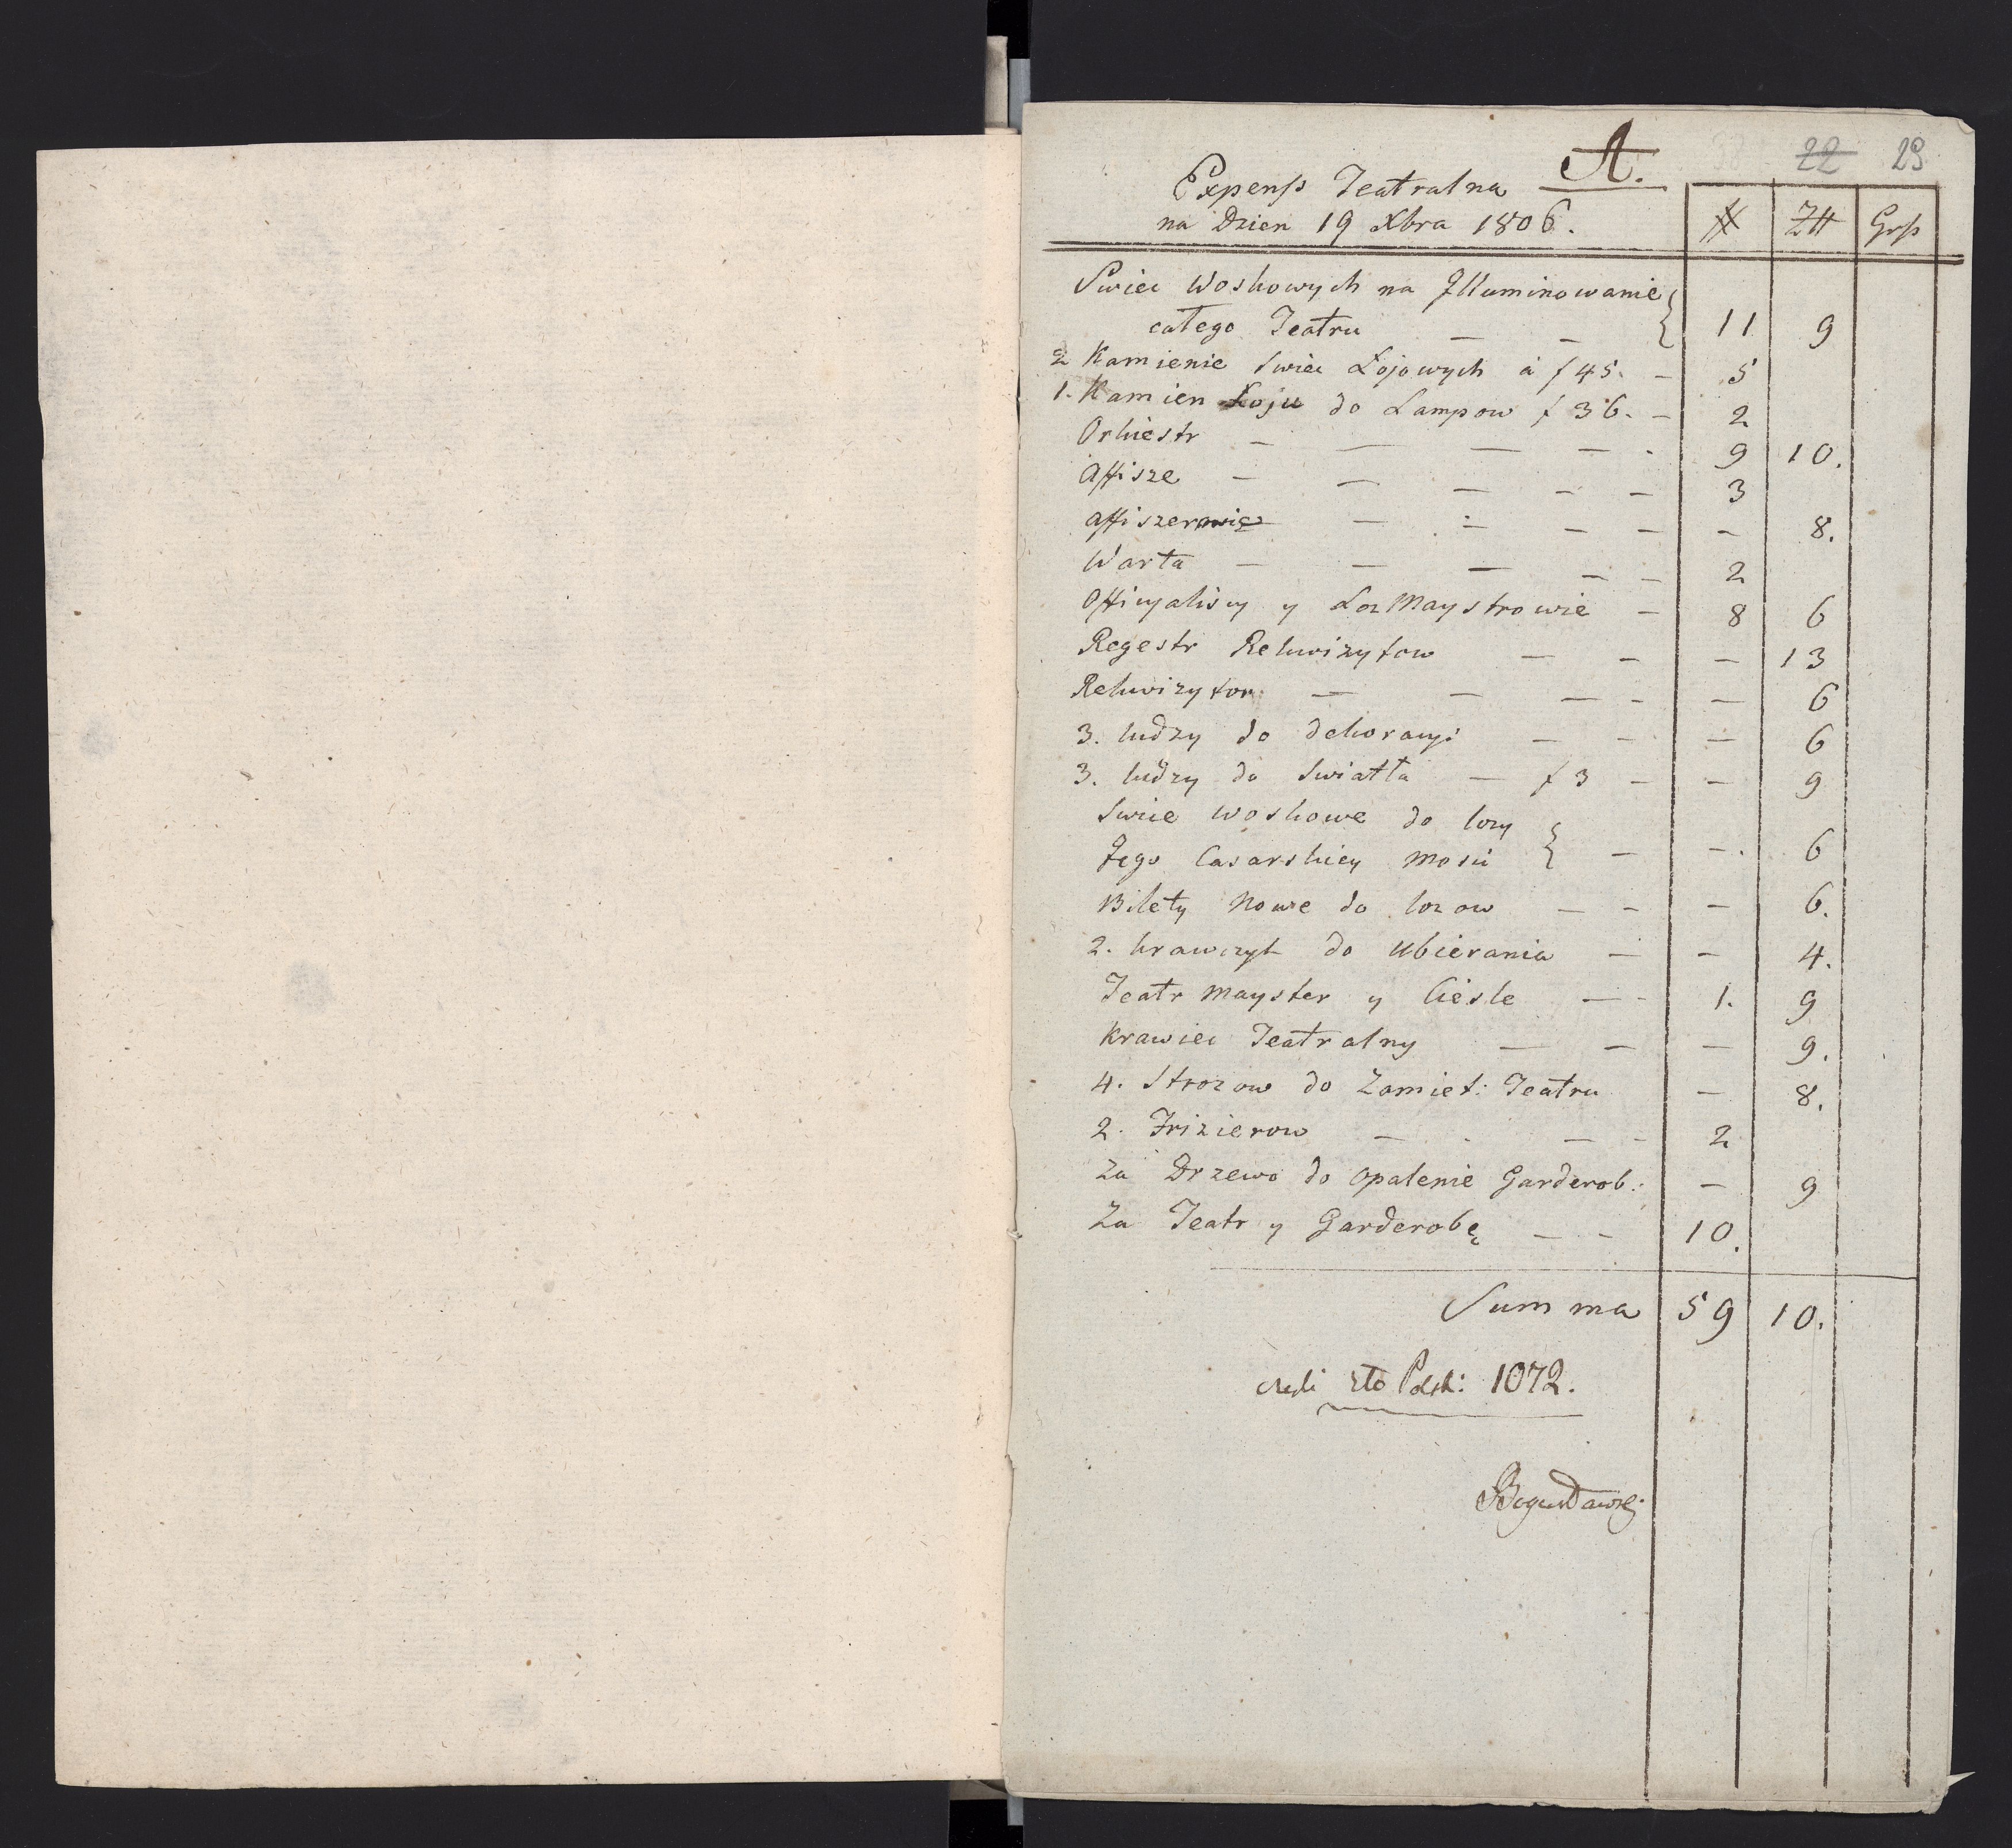 A. 22 29
Expenss Teatralna
na Dzien 19 Xbra 1806. # Zł Grss
Swiec Woskowych na Illuminowanie
całego Teatru — — 11 9
2 Kamienie swiec Łojowych á f 45. — 5
1. Kamien Łoju do Lampow f 36. — 2
Orkiestr — — — — . 9 10.
Affisze — — — — — 3
Affiszerowie — — — — — 8.
Warta — — — — — 2
Officyaliscy y LozMaystrowie — 8 6
Regestr Rekwizytow — — — 13
Rekwizytor — — — — — 6
3. ludzy do dekoracyi — — — 6
3. ludzy do Swiatła — f 3 — — 9
Swice woskowe do lozy
Jego Casarskiey Mosci — —. 6
Bilety Nowe do lozow — — — 6.
2. krawczyk do Ubierania — — 4.
Teatr mayster y Ciesle — - 1. 9
Krawiec Teatralny — — — 9.
4. Strozow do Zamiet: Teatru — 8.
2. Frizierow — . — — 2
Za Drzewo do opalenie Garderob: — 9
Za Teatr y Garderobę — — 10.
Summa 59 10.
złto Polsk: 1072.
Bogusławski